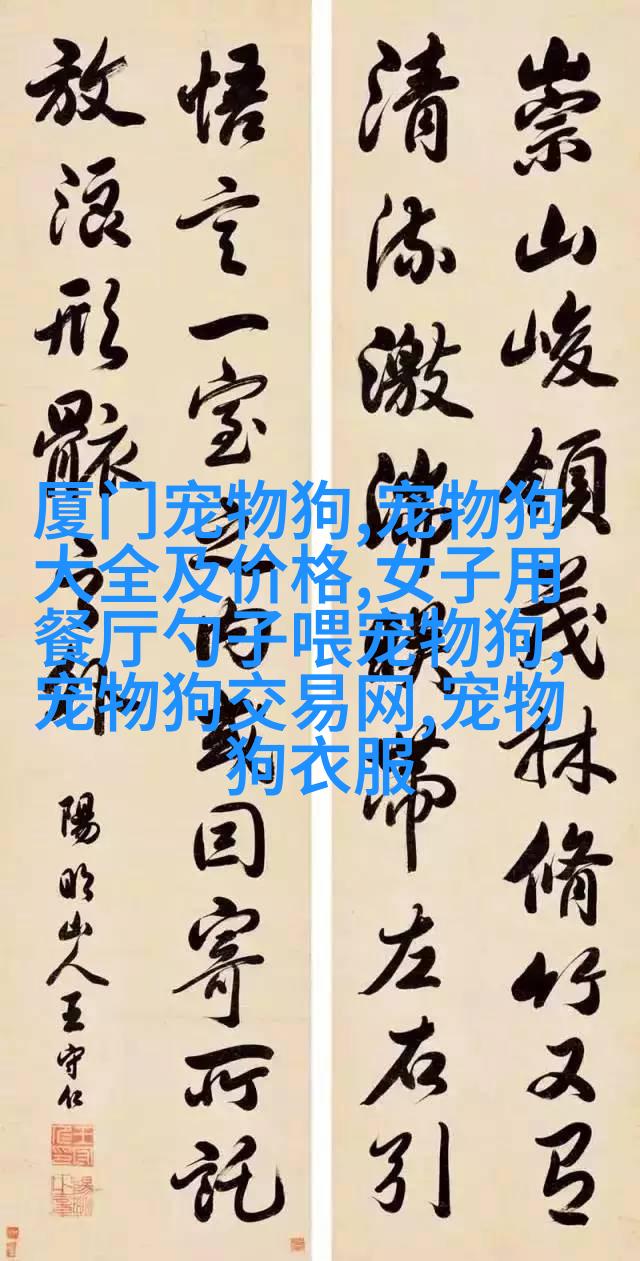 崇山峻領茂林脩竹又有
清流激湍暎帶左右引
悟言一室之内或因寄所託
放浪形骸之外
陽明山人王守仁
厦门宠物狗,宠物狗
大全及价格,女子用
餐厅勺子喂宠物狗,
宠物狗交易网,宠物
狗衣服